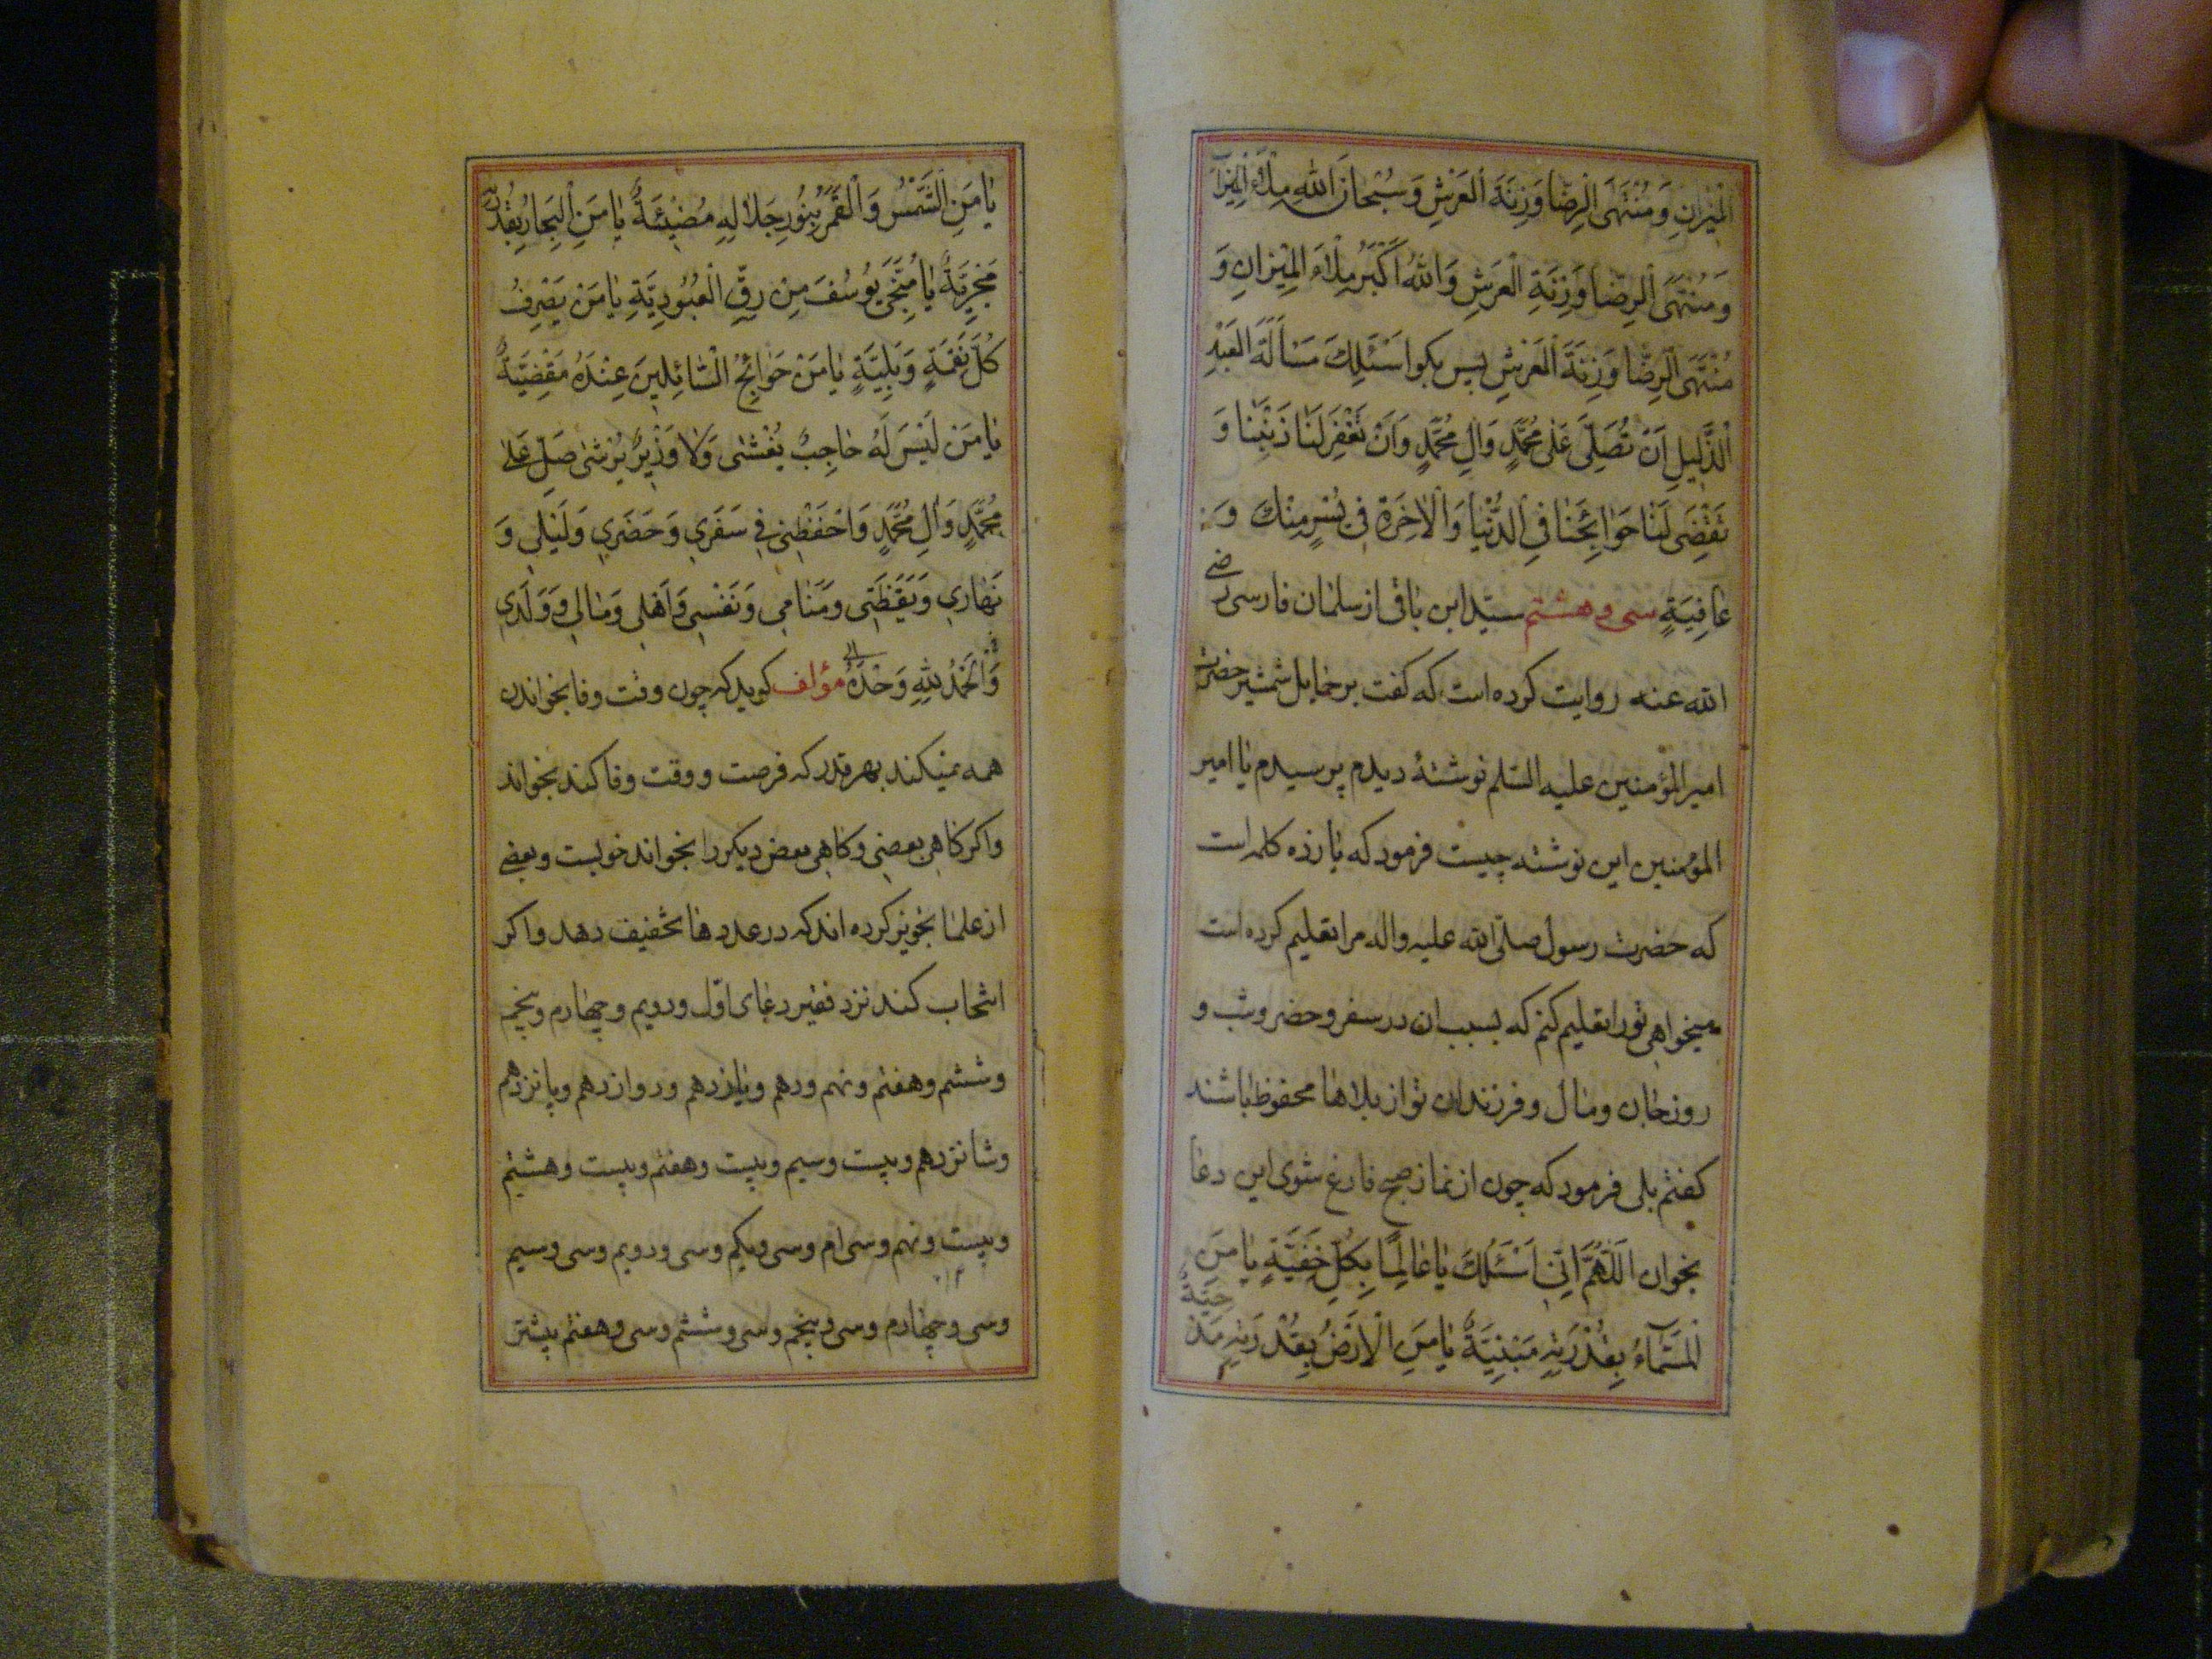 الْمِيزانِ وَمُنْتَهَى الرِّضا وَزِنَةَ الْعَرْشِ وَسُبْحانَ اللهِ مِلْاَ الْمِيزانِ
وَمُنْتَهَى الرِّضا وَزِنَةِ الْعَرْشِ وَاللهُ اَكْبَرُ مِلْاَءَ الْمِيْزانِ وَ
مُنْتَهَى الرِّضا وَزِنَةَ الْعَرْشِ پس بكو اَسْئَلُكَ مَسْاَلَةَ الْعَبْدِ
الذَّلِيلِ اَنْ تُصَلِّىَ عَلى مُحَمَّدٍ وَالِ مُحَمَّدٍ وَاَنْ تَغْفِرَ لَنا ذَنْبَنا وَ
تَقْضِىَ لَنا حَوائِجَنا فِى الدُّنْيا وَالْاخِرَةِ فِى يُسْرٍ مِنْكَ وَ
عافِيَةٍ سى و هشتم سيّد ابن باقى از سلمان فارسى رضى
الله عنه روايت كرده است كه كفت بر حمايل شمشير حضرت
امير المؤمنين عليه السّلم نوشتهٔ ديدم پرسيدم يا امير
المؤمنين اين نوشته چيست فرمود كه يازده كلمه است
كه حضرت رسول صلّى الله عليه واله مرا تعليم كرده است
ميخواهى تورا تعليم كنم كه بسبب ان در سفر و حضر و شب و
روز جان و مال و فرزندان تو از بلاها محفوظ باشند
كفتم بلى فرمود كه چون از نماز صبح فارغ شوى اين دعا
بخوان اَللّهُمَّ اِنّى اَسْئَلُكَ يا عالِمًا بِكُلِّ خَفِيَّةٍ يا مَنِ
السَّمآءُ بِقُدْرَتِهِ مَبْنِيَّةٌ يا مَنِ الْاَرْضُ بِقُدْرَتِهِ مَدْحِيَّةٌ
يا مَنِ الشَّمْسُ وَالْقَمَرُ بِنُورِ جَلالِهِ مُضِيْئَةٌ يا مَنِ الْبِحارُ بِقُدْرَتِهِ
مَجْرِيَّةٌ يا مُنَجِّىَ يُوسُفَ مِنْ رِقِّ الْعُبُودِيَّةِ يا مَنْ يَصْرِفُ
كُلَّ نَقْمَةٍ وَبَلِيَّةٍ يا مَنْ حَوائِجُ السّائِلِينَ عِنْدَهُ مَقْضِيَّةٌ
يا مَنْ لَيْسَ لَهُ حاجِبٌ يُغْشى وَلا وَزْيرٌ يُرْشى صَلِّ عَلى
مُحَمَّدٍ وَالِ مُحَمَّدٍ وَاحْفَظْنِى فِى سَفَرِى وَحَضَرِى وَلَيْلِى وَ
نَهارِى وَيَقَظَتِى وَمَنامِى وَنَفْسِى وَاَهْلِى وَمالِى وَوَلَدِى
وَالْحَمْدُ لِلّهِ وَحْدَهُ مؤلف كويد كه چون وقت وفا بخواندن
همه نميكند بهر قدر كه فرصت و وقت وفا كند بخواند
واكر كاهى بعضى وكاهى بعض ديكر را بخواند خوبست وبعضى
از علما تجويز كرده اند كه در عددها تخفيف دهد واكر
انتخاب كند نزد فقير دعاى اوّل ودويم وچهارم وپنجم
وششم وهفتم ونهم ودهم ويازدهم ودوازدهم وپانزدهم
وشانزدهم وبيست وسيم وبيست وهفتم وبيست وهشتم
وبيست ونهم وسى ام وسى ويكم وسى ودويم وسى وسيم
وسى وچهارم وسى وپنجم وسى وششم وسى وهفتم بيشتر